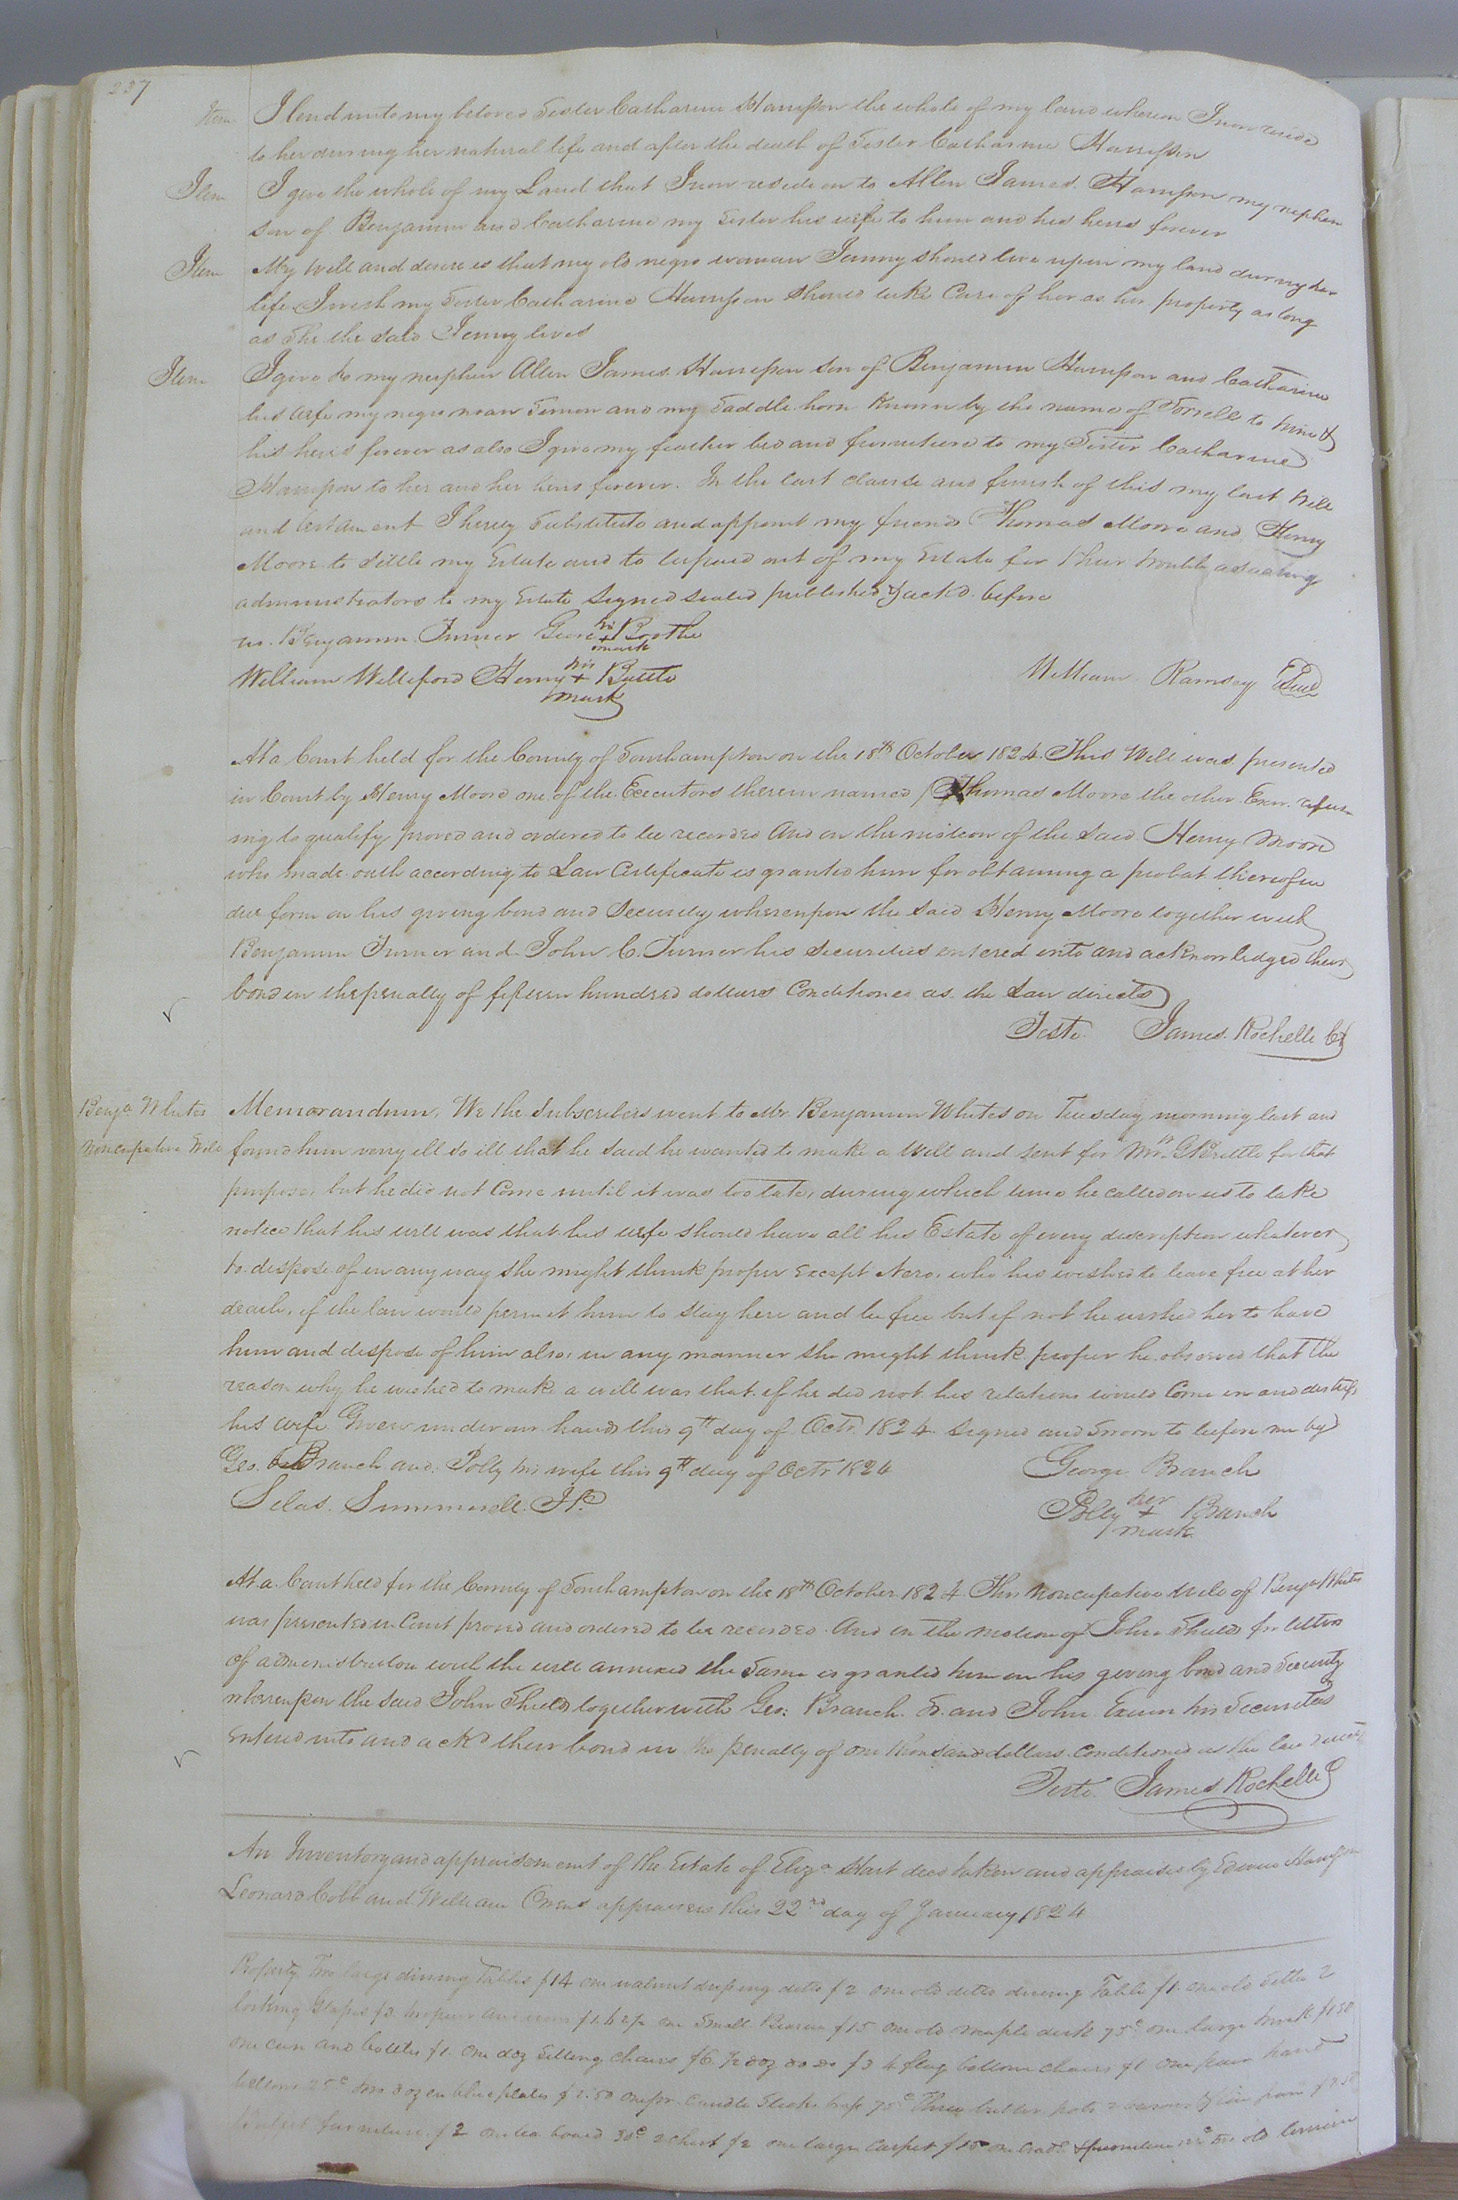 237
Item I lend unto my beloved Sister Catharine Harrison the whole of my land whereon I now reside
to her during her natural life and after the death of Sister Catharine Harrison
Item I give the whole of my Land that I now reside on to Allen James Harrison my nephew
son of Benjamin and Catharine my Sister his wife to him and his heirs forever
Item My will and desire is that my old negro woman Jenny should live upon my land during her
life I wish my Sister Catharine Harrison should take Care of her as her property as long
as She the said Jenny lives
Item I give to my nephew Allen James Harrison son of Benjamin Harrison and Catharine
his wife my negro man Simon and my Saddle horse known by the name of Sorrell to him &
his heirs forever as also I give my feather bed and furniture to my Sister Catharine
Harrison to her and her heirs forever. In the last clause and finish of this my last Will
and testament I hereby Substitute and appoint my friends Thomas Moore and Henry
Moore to settle my Estate and to be paid out of my Estate for their trouble as acting
administrators to my Estate Signed sealed published & ackd. before
us. Benjamin Turner his + mark
William Williford Henry his + mark Battle William Ramsey Seal
At a Court held for the County of Southampton on the 18th October 1824 This Will was presented
in Court by Henry Moore one of the Executors therein named (Thomas Moore the other Exor. refus
ing to qualify proved and ordered to be recorded And on the motion of the said Henry Moore
who made oath according to Law Certificate is granted him for obtaining a probat thereof in
due form on his giving bond and Security whereupon the said Henry Moore together with
Benjamin Turner and John C. Turner his Securities entered into and acknowledged their
bond in the penalty of fifteen hundred dollars Conditioned as the Law directs
Teste. James Rochelle
Benja Whites
Noncupative Will
Memorandum, We the Subscribers went to Mr. Benjamin Whites on Tuesday morning last and
found him verry ill so ill that he said he wanted to make a Will and sent for for that
purpose, but he did not Come until it was too late, during which time he called on us to take
notice that his will was that his wife should have all his Estate of every discription whatever
to dispose of in any way she might think proper except Nero, who his wished to leave free at her
death, if the law would permit him to stay here and be free but if not he wished her to have
him and dispose of him also, in any manner she might think proper he observed that the
reason why he wished to make a will was that if he did not his relations would Come in and distress
his wife Given under our hands this 9th day of Octr. 1824 Signed and Sworn to before me by
Geo. Branch and Polly his wife this 9th day of Octr 1824 George Branch
Silas Summerell JP. Polly her + mark Branch
At a Court held for the County of Southampton on the 18th October 1824 This Noncupative Will of Benja White
was presented in Court proved and ordered to be recorded. And on the motion of John Shields for letters
of administration with the will annexed the Same is granted him on his giving bond and Security
whereupon the said John Shields together with Geo. Branch and John Exum his Securities
entered into and ackd their bond in the penalty of one thousand dollars Conditioned as the law directs
Teste. James Rochelle
An Inventory and appraisement of the Estate of Eliza Hart decd taken and appraised by Edwin
Leonard Cobb and William Owens appraisers this 22nd day of January 1824
Property, Two large dining Tables $14 one walnut dressing ditto $2 one old ditto dining Table $1 one old
looking Glasses one Small Beaureau $15 one old maple desk 75c one large trunk $1.50
one case and bottles $1. one doz Sitting Chairs $6. ½ doz do do $3 4 flag bottom chairs $1 one pair hand
bellows 25c two dozen blue plates $2.50 one pr. Candle Sticks 75c Three butter pots
furniture $2 one tea board 30c 2 chest $2 one large Carpet $15 old